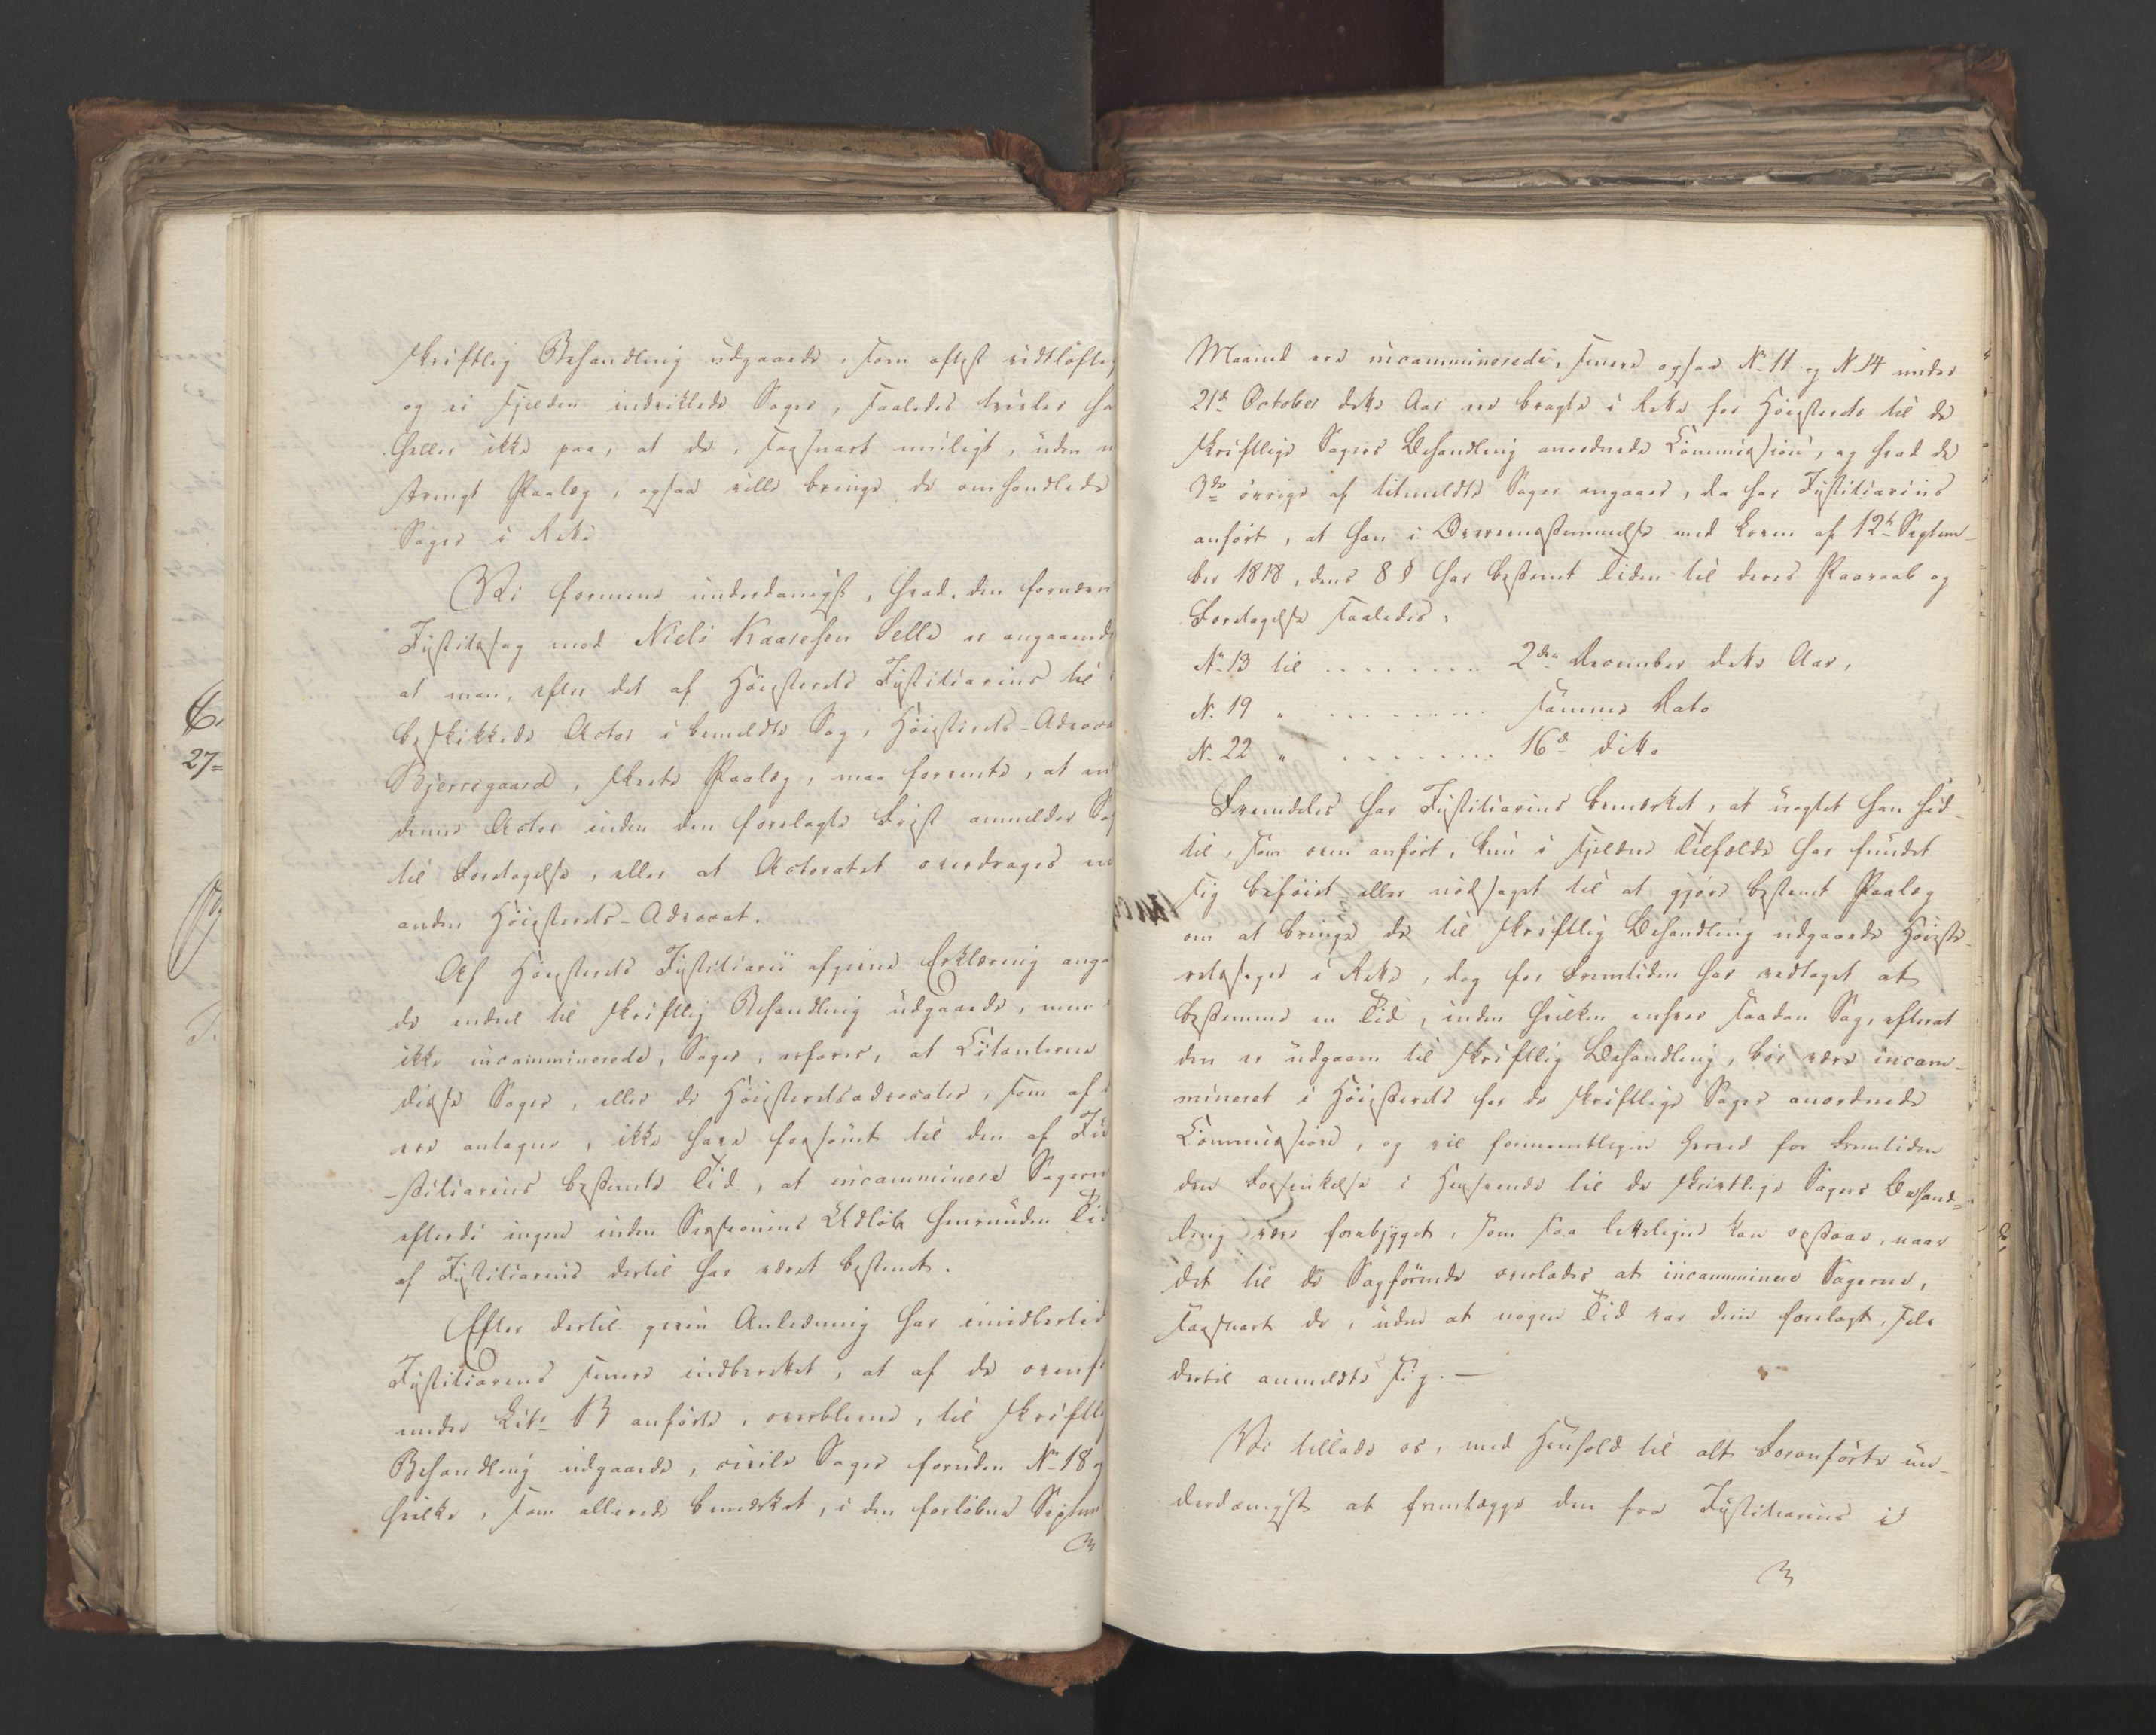 skriftlig Behandling udgaaede, som oftest vidtløftig
og ei sjelden indviklede Sager, saaledes tvivler ha
heller ikke paa, at de, saasnart muligt, uden n
strengt Paalæg, ogsaa ville bringe de omhandlede
Sager i Rette
Vi formene underdanigst, hvad den fornævn
Justitssag mod Niels Kaaresen Selle er angaaende
at man, efter det af Høiesterets Justitiarius til
beskikkede Actor i bemeldte Sag, Høiesterets-Advoca
Bjerregaard, skeete Paalæg, maa forvente, at en
denne Actor inden den forelagte Frist anmelder Sag
til Foretagelse, eller at Actoratet overdrages en
anden Høiesterets-Advocat.
Af Høiesterets Justitiarii afgivne Erklæring anga
de endeel til skriftlig Behandling udgaaede, men
ikke incamminerede, Sager, erfares, at Citanterne
disse Sager, eller de Høiesteretsadvocater, som af
ere antagne, ikke have forsømt til den af Ju
-stitiarius bestemte Tid, at incamminere Sagerne
efterdi ingen inden Sessionens Udløb henrunden Tid
af Justitiarius dertil har været bestemt.
Efter dertil given Anledning har imidlertid
Justitiarius senere indberettet, at af de ovenf
under Litr B anførte, overblevne, til skriftlig
Behandling udgaaede, civile Sager foruden No 18 og
hvilke, som allerede bemærket, i den forløbne Septem
Maaned ere incamminerede, senere ogsaa No 11 og No 14 under
21de October dette Aar ere bragte i Rette for Høiesterets til de
skriftlige Sagers Behandling anordnede Commission, og hvad de
3de øvrige af bemeldte Sager angaaer, da har Justitiarius
anført, at han i Overeensstemmelse med Loven af 12te Septem-
ber 1818, dens 8 § har bestemt Tiden til deres Paaraab og
Foretagelse saaledes:
No 13 til ........ 2den December dette Aar,
No. 19 " ......... samme Dato
No. 22 " ........ 16de ditto
Fremdeles har Justitiarius bemærket, at uagtet han hid-
til, som oven anført, kun i sjeldne Tilfælde har fundet
sig beføiet eller nødsaget til at gjøre bestemt Paalæg
om at bringe de til skriftlig Behandling udgaaede Høieste-
retssager i Rette, dog for Fremtiden har vedtaget at
bestemme en Tid, inden hvilken enhver saadan Sag, efterat
den er udgaaen til skriftlig Behandling, bør være incam-
mineret i Høiesterets for de skriftlige Sager anordnede
Commission, og vil formeentligen herved for Fremtiden
den Forsinkelse i Henseende til de skriftlige Sagers Behand=
ling være forebygget, som saa letteligen kan opstaae, naar
det til de Sagførende overlades at incamminere Sagerne,
saasnart de, uden at nogen Tid var dem forelagt, selv
dertil anmeldte sig. —
Vi tillade os, med Henhold til alt Foranførte un-
derdanigst at fremlægge den fra Justitiarius i